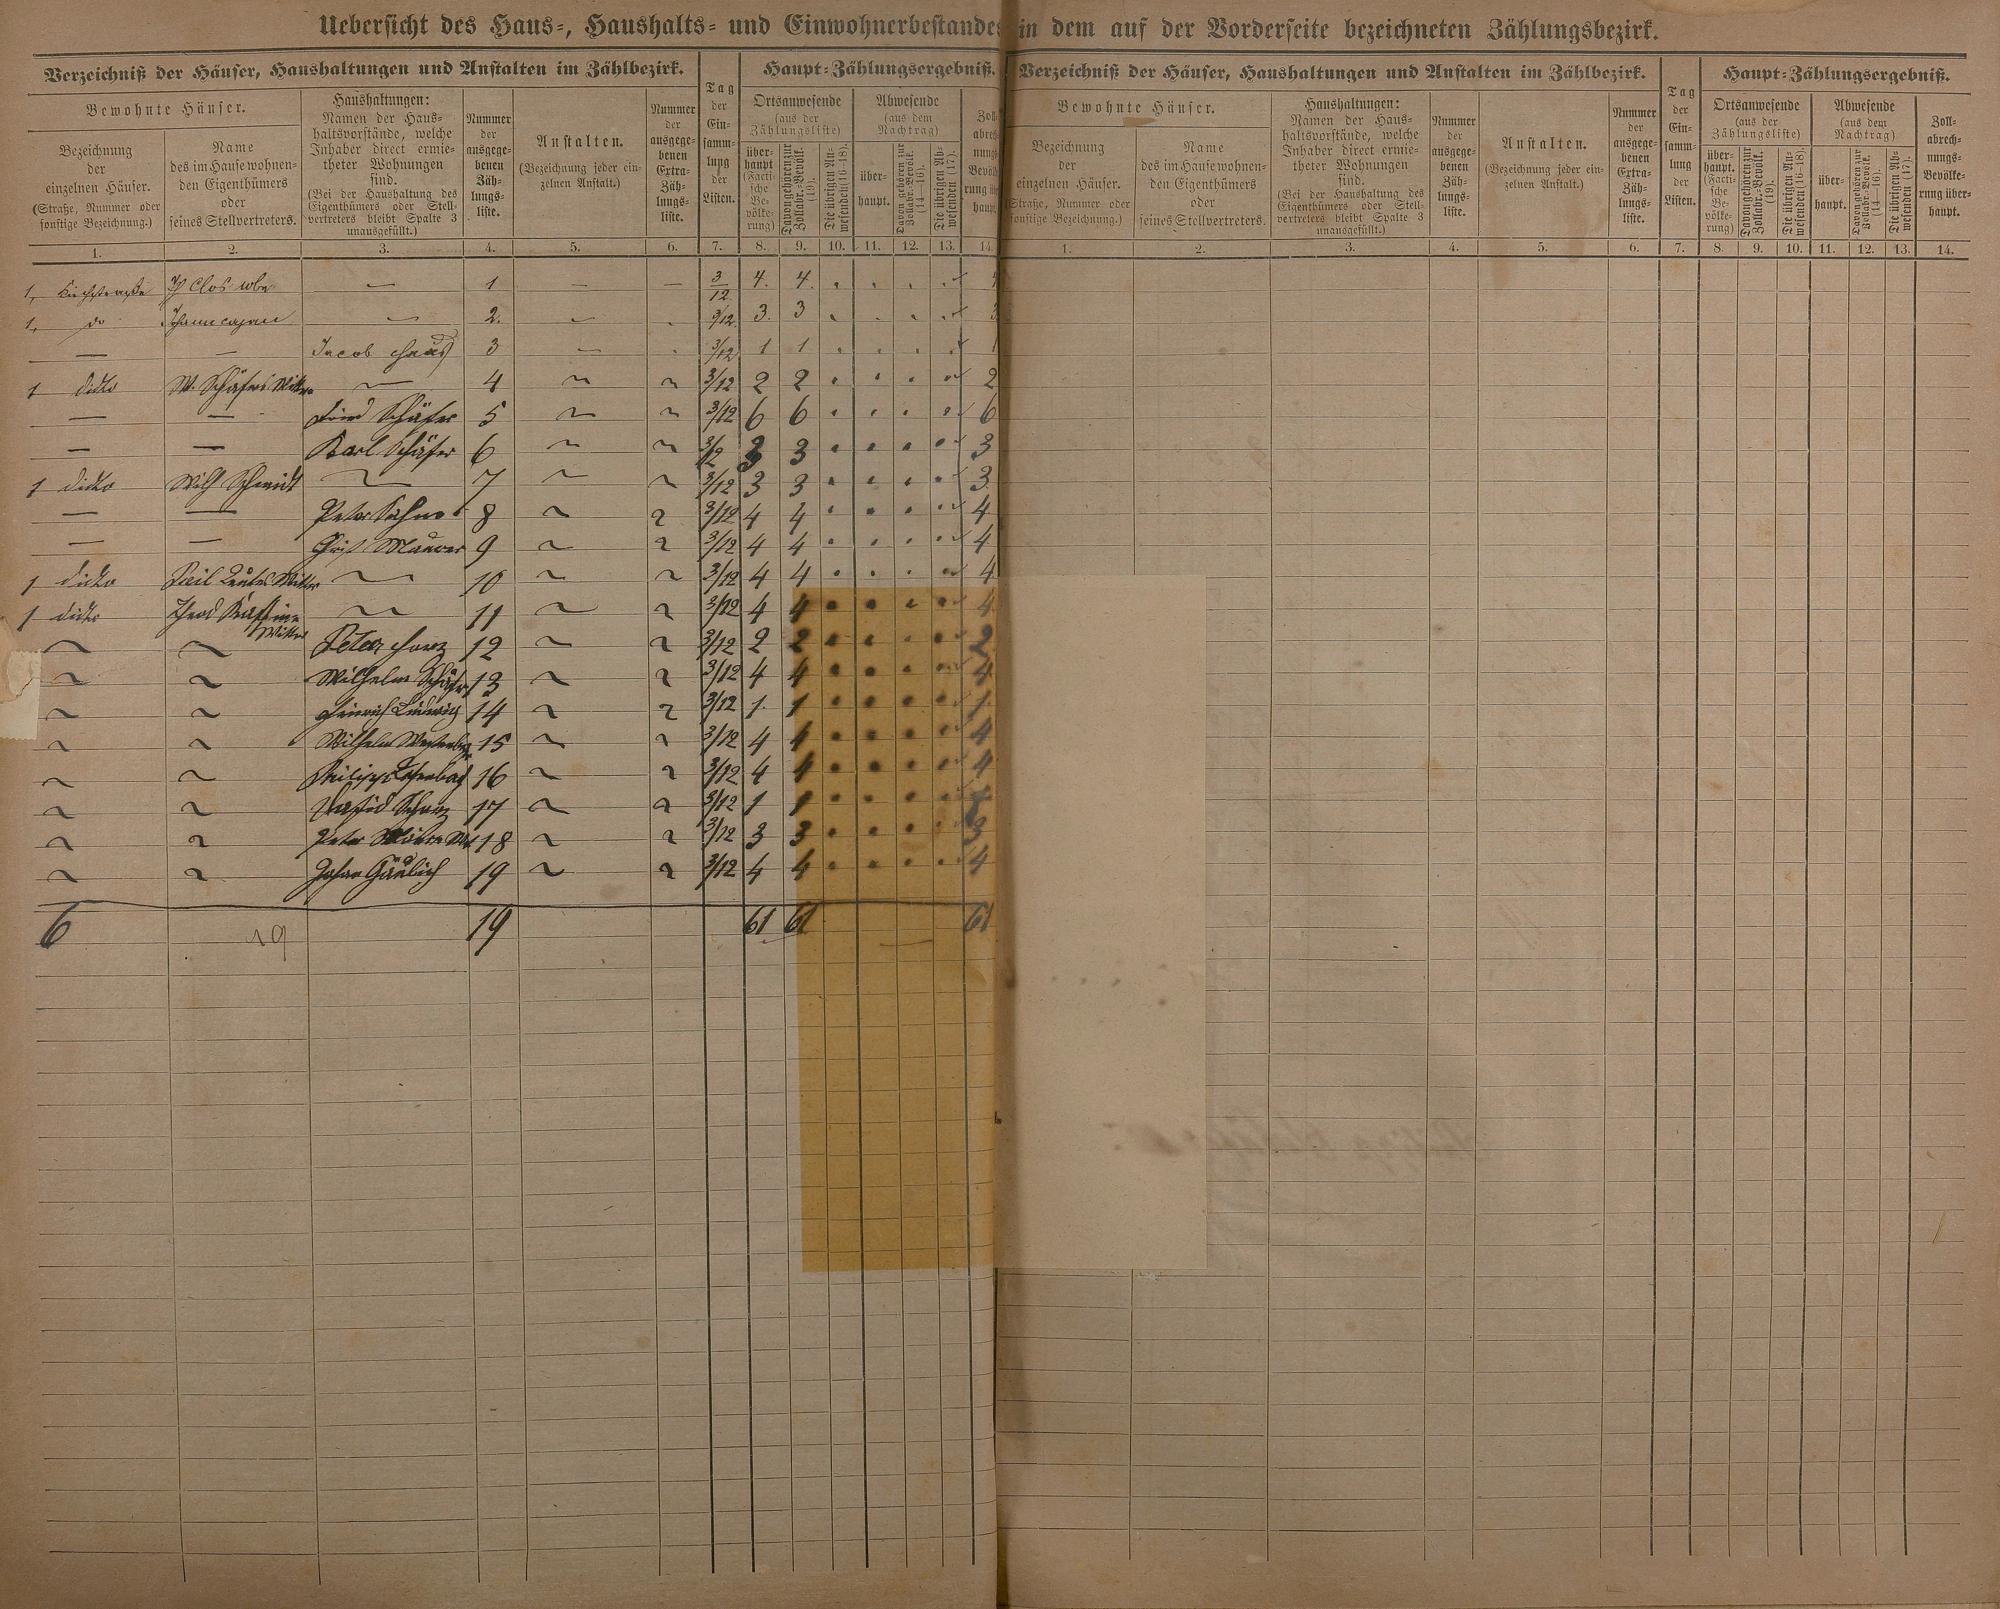 Uebersicht des Haus-, Haushalts- und Einwohnerbestandes in dem auf der Vorderseite bezeichneten Zählungsbezirk.
Verzeichniß der Häuser, Haushaltungen und Anstalten im Zählbezirk.
Bewohnte Häuser.
Bezeichnung
der
einzelnen Häuser.
(Straße, Nummer oder
sonstige Bezeichnung.)
Name
des im Hause wohnen-
den Eigenthümers
oder
seines Stellvertreters.
Haushaltungen:
Namen der Haus-
haltsvorstände, welche
Inhaber direct ermie-
theter Wohnungen
sind.
(Bei der Haushaltung des
Eigenthümers oder Stell-
vertreters bleibt Spalte 3
unausgefüllt.)
Nummer
der
ausgege-
benen
Zäh-
lungs-
liste.
Anstalten.
(Bezeichnung jeder ein-
zelnen Anstalt.)
Nummer
der
ausgege-
benen
Extra-
Zäh-
lungs-
liste.
Tag
der
Ein-
samm-
lung
der
Listen.
Haupt-Zählungsergebniß.
Ortsanwesende
(aus der
Zählungsliste)
über-
haupt
(Facti-
sche
Be-
völke-
rung)
Davon gehören zur
Zollabr.-Bevölk.
(19).
Die übrigen An-
wesenden (16–18).
Abwesende
(aus dem
Nachtrag)
über-
haupt.
Davon gehören zur
Zollabr.-Bevölk.
(14–16).
Die übrigen Ab-
wesenden (17).
Zoll-
abrech-
nungs-
Bevölke-
rung über-
haupt.
1. 2. 3. 4. 5. 6. 7. 8. 9. 10. 11. 12. 13. 14.
1, Kirchstraße 1 3/12 4. 4.
1, do 2. 3/12 3. 3 3
Jacob 3 3/12 1 1 1
1 ditto W. Schäfers 4 3/12 2 2 2
Schäfer 5 3/12 6 6 6
Karl Schäfer 6 3/12 3 3 3
1 ditto Wilh Schmidt 7 3/12 3 3 3
Peter 8 3/12 4 4 4
Christ Maurer 9 3/12 4 4 4
1 ditto 10 3/12 4 4 4
1 ditto 11 3/12 4 4 4
Peter 12 3/12 2 2 2
Wilhelm Schäfer 13 3/12 4 4 4
Heinrich Ludwig 14 3/12 1 1 1
Wilhelm 15 3/12 4 4 4
Philipp 16 3/12 4 4 4
17 3/12 1 1 1
Peter 18 3/12 3 3 3
Johan 19 3/12 4 4 4
6 19 19 61 61 61
Verzeichniß der Häuser, Haushaltungen und Anstalten im Zählbezirk.
Bewohnte Häuser.
Bezeichnung
der
einzelnen Häuser.
(Straße, Nummer oder
sonstige Bezeichnung.)
Name
des im Hause wohnen-
den Eigenthümers
oder
seines Stellvertreters.
Haushaltungen:
Namen der Haus-
haltsvorstände, welche
Inhaber direct ermie-
theter Wohnungen
sind.
(Bei der Haushaltung des
Eigenthümers oder Stell-
vertreters bleibt Spalte 3
unausgefüllt.)
Nummer
der
ausgege-
benen
Zäh-
lungs-
liste.
Anstalten.
(Bezeichnung jeder ein-
zelnen Anstalt.)
Nummer
der
ausgege-
benen
Extra-
Zäh-
lungs-
liste.
Tag
der
Ein-
samm-
lung
der
Listen.
Haupt-Zählungsergebniß.
Ortsanwesende
(aus der
Zählungsliste)
über-
haupt.
(Facti-
sche
Be-
völke-
rung)
Davon gehören zur
Zollabr.-Bevölk.
(19).
Die übrigen An-
wesenden (16–18).
Abwesende
(aus dem
Nachtrag)
über-
haupt.
Davon gehören zur
Zollabr.-Bevölk.
(14–16).
Die übrigen Ab-
wesenden (17).
Zoll-
abrech-
nungs-
Bevölke-
rung über-
haupt.
1. 2. 3. 4. 5. 6. 7. 8. 9. 10. 11. 12. 13. 14.